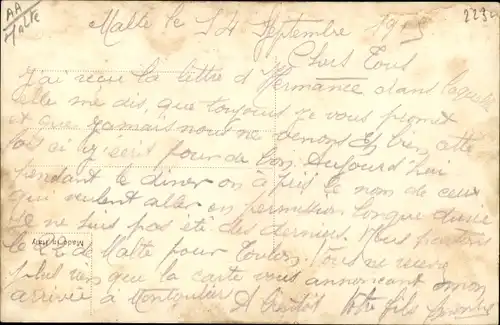 AA
Malte
Malte le 14 Septembre 1913
223
Chers Tous
J'ai reçu la lettre d'Hermance dans laquelle
elle me dis, que toujours je vous promet
et que jamais nous ne venons Eh bien cette
fois ci c'est pour de bon. Aujourd'hui
pendant le diner on à pris le nom de ceux
qui veulent aller en permission longue durée
je ne suis pas été des derniers. Nous partons
le 22 de Malte pour Toulon. Vous ne
plus rien que la carte vous annoncant mon
arrivée à A bientôt Votre fils
Made in Italy